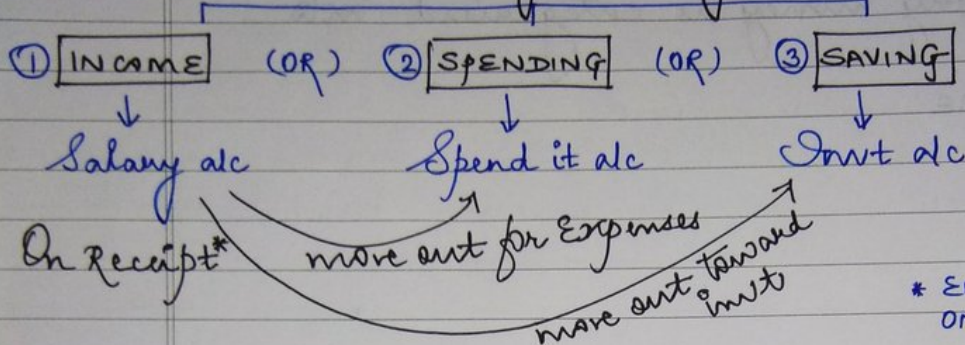 ① INCOME (OR) ② SPENDING (OR) ③ SAVING
Salary a/c Spend it a/c Invt a/c
On Receipt* move out for Expenses
move out toward
invt
*